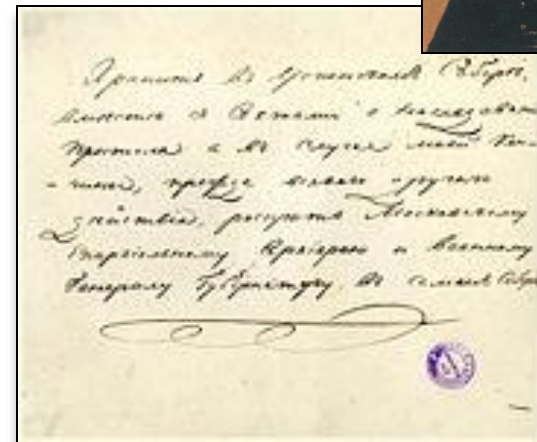 Хранить въ Успенскомъ Соборѣ,
вмѣстѣ съ Актами о наслѣдованіи
Престола а въ случаѣ моей кон-
-чины, прежде всякаго другаго
дѣйствія, раскрыть Московскому
Епархіальному Архіерею и Военному
Генералу Губернатору, въ самомъ Собо